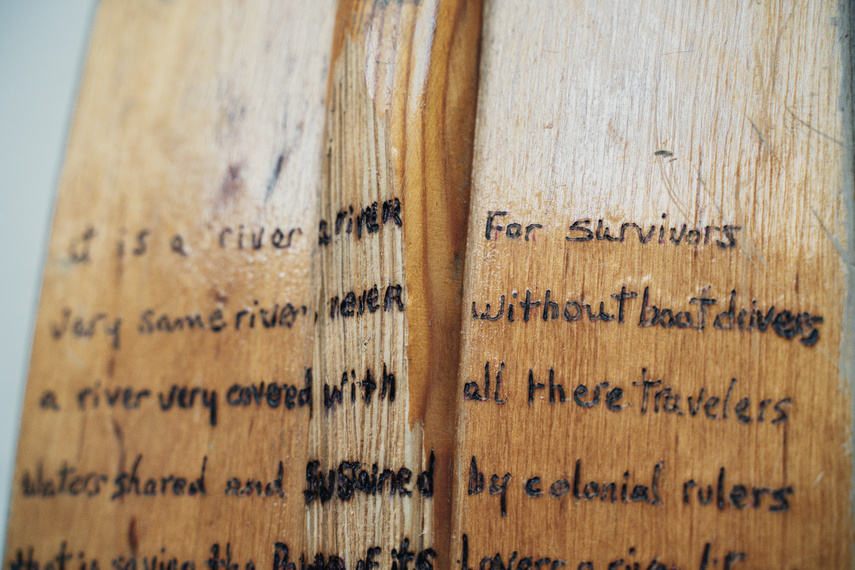 it is a river a river For survivors
Very same river, never without boat drivers
a river very covered with all these travelers
Waters shared and sustained by colonial rulers
that is saving the of its Lovers a river